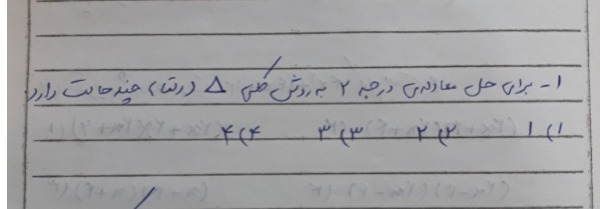 ۱- برای حل معادله‌ی درجه ۲ به روش کلی Δ (دلتا) چند حالت دارد
۱) ۱ ۲) ۲ ۳) ۳ ۴) ۴